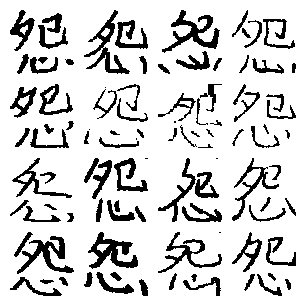 怨怨怨怨
怨怨怨怨
怨怨怨怨
怨怨怨怨